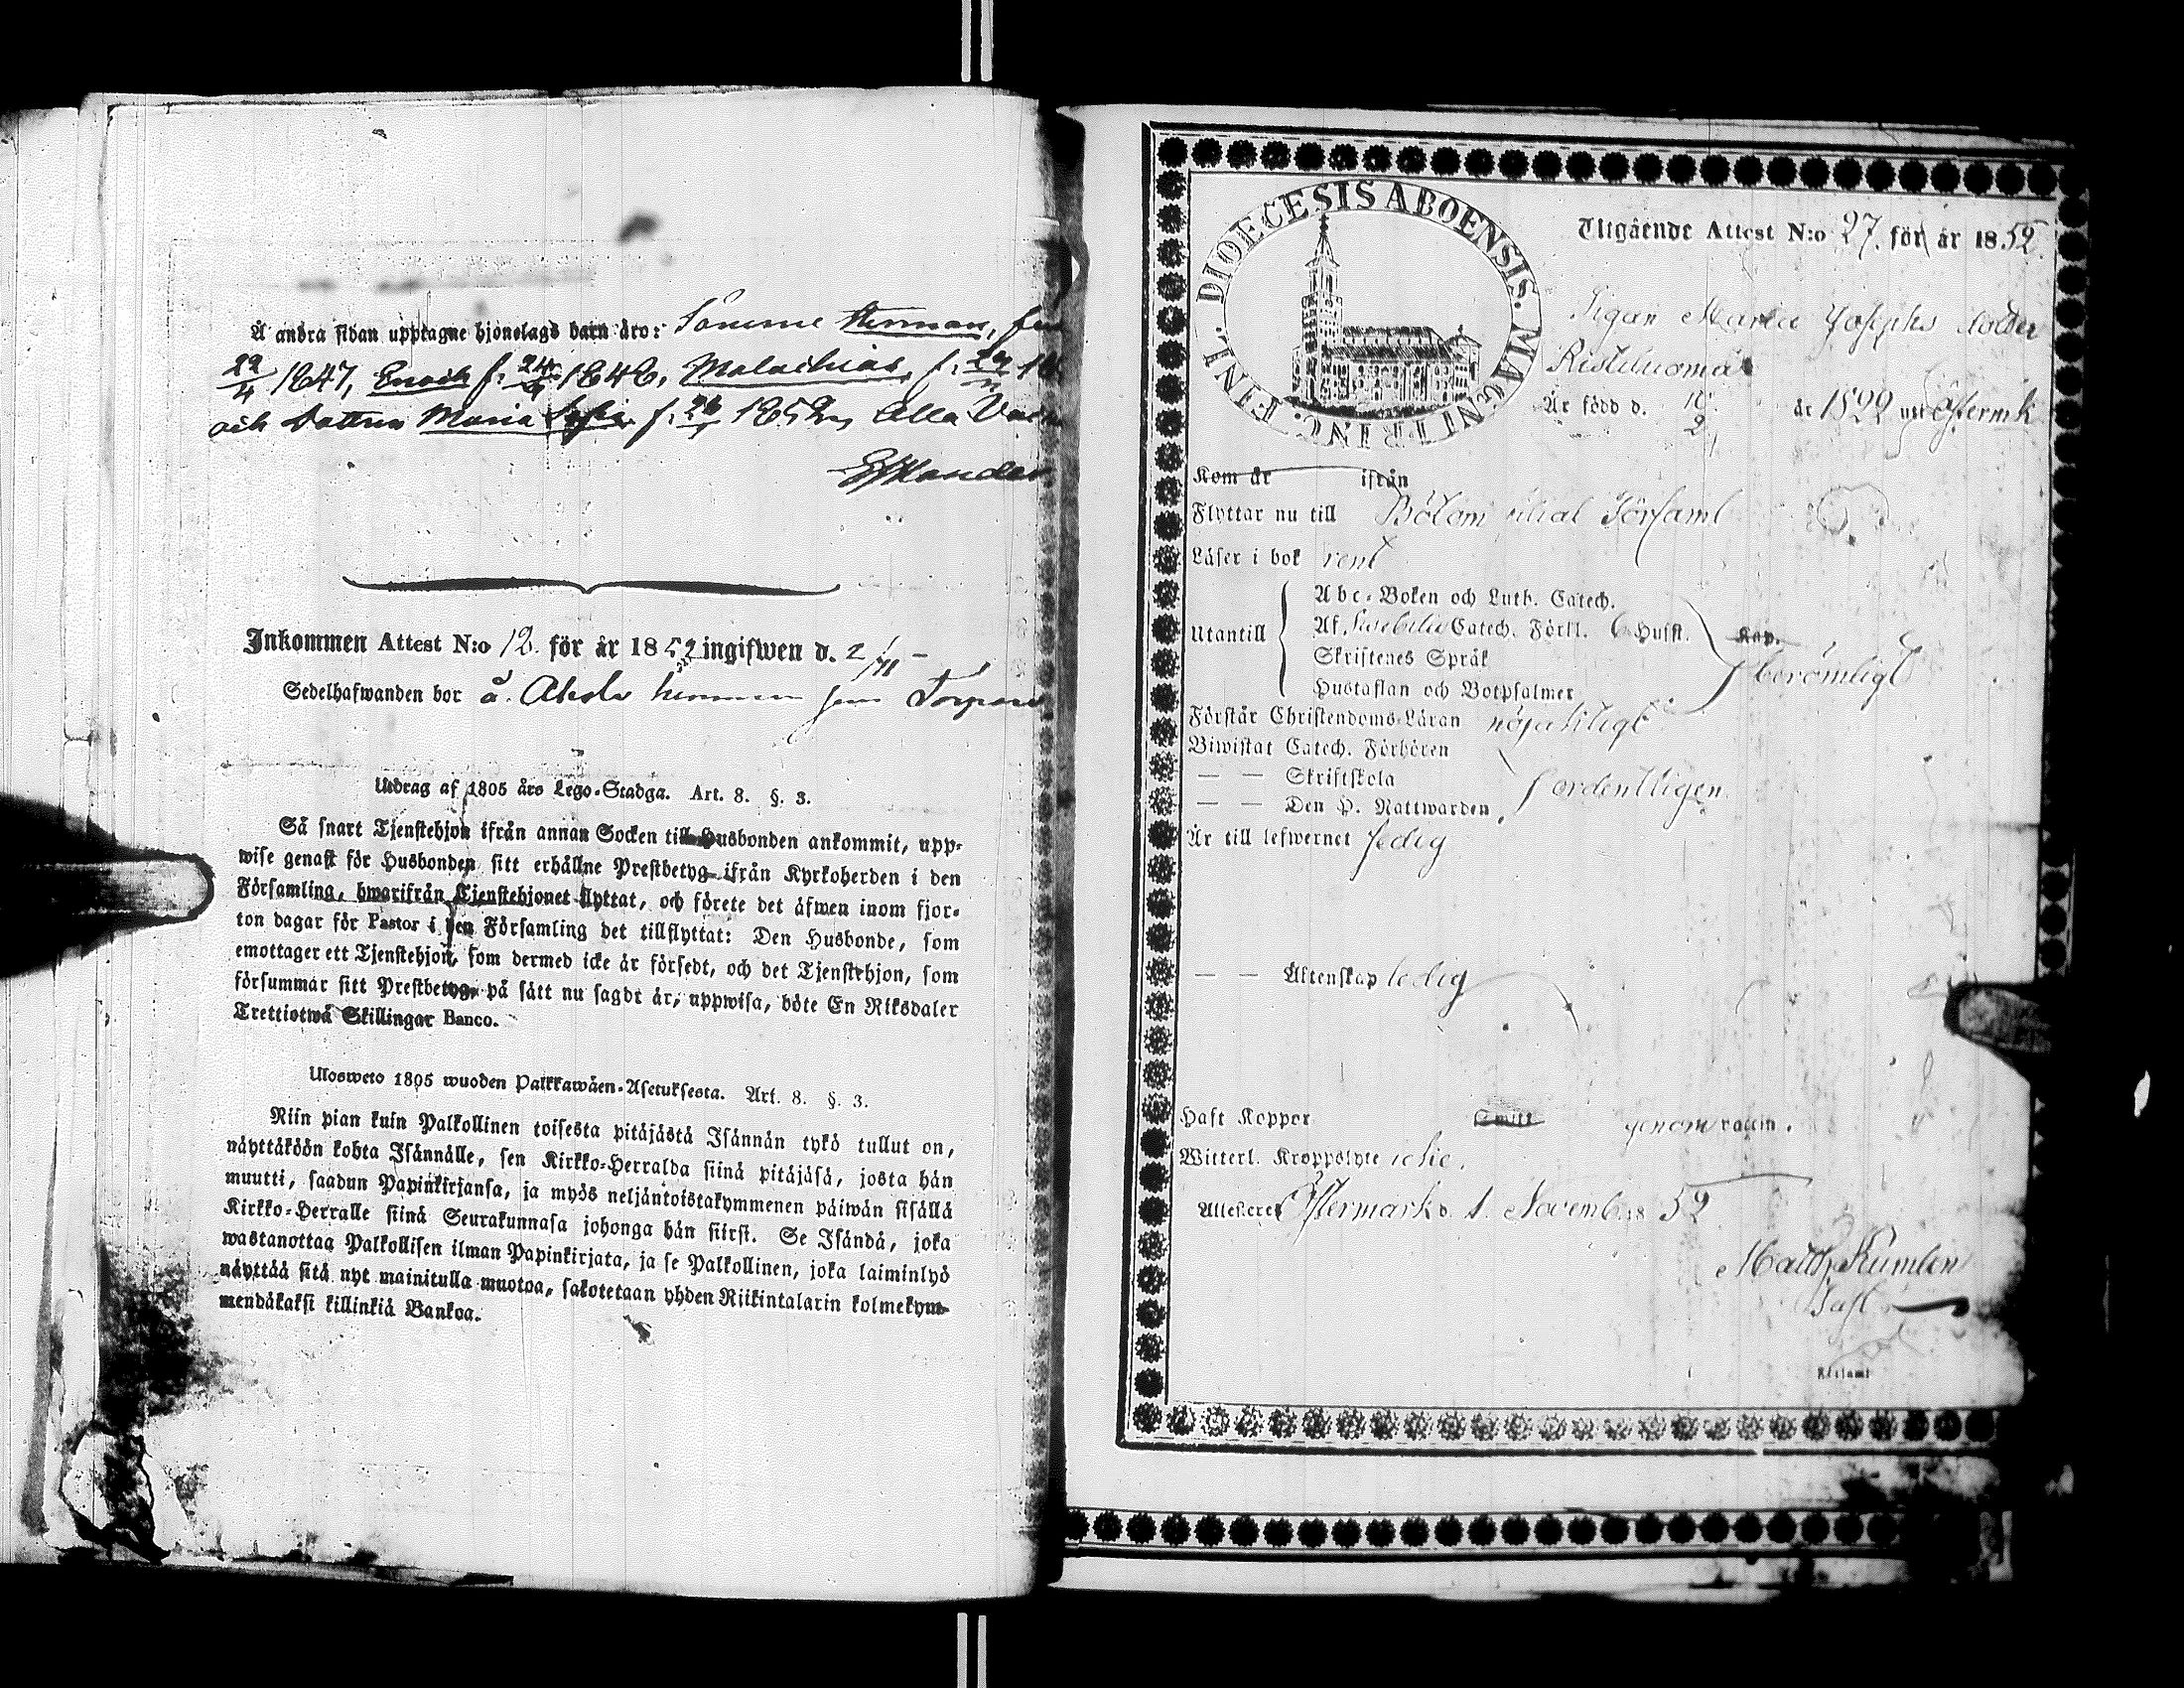 Å andra sidan upptagne hjonelags barn äro: Sönerne Herman,
22/4 1847, Enoch f. 1848, Malachias, f.
och dottren Maria f. 1852, alla
Inkommen Attest N:o 12. för år 1852 ingifwen d. 2/11
Sedelhafwanden bor å
Utdrag af 1805 års Lego-Stadga. Art. 8. §. 3.
Så snart Tjenstehjon ifrån annan Socken till Husbonden ankommit, upp-
wise genast för Husbonden sitt erhållne Prestbetyg ifrån Kyrkoherden i den
Församling, hwarifrån Tjenstehjonet flyttat, och förete det äfwen inom fjor-
ton dagar för Pastor i den Församling det tillflyttat: Den Husbonde, som
emottager ett Tjenstehjon, som dermed icke är försedt, och det Tjenstehjon, som
försummar sitt Prestbetyg, på sätt nu sagdt är, uppwisa, böte En Riksdaler
Trettiotwå Skillingar Banco.
Ulosweto 1805 wuoden Palkkawäen-Asetuksesta. Art. 8. §. 3.
Niin pian kuin Palkollinen toisesta pitäjästä Isännän tykö tullut on,
näyttäköön kohta Isännälle, sen Kirkko-Herralda siinä pitäjäsä, josta hän
muutti, saadun Papinkirjansa, ja myös neljäntoistakymmenen päiwän sisällä
Kirkko-Herralle siinä Seurakunnasa johonga hän siirsi. Se Isändä, joka
wastanottaa Palkollisen ilman Papinkirjata, ja se Palkollinen, joka laiminlyö
näyttää sitä nyt mainitulla muotoa, sakotetaan yhden Riikintalarin kolmekym-
mendäkaksi killinkiä Bankoa.
DIOECESIS ABOENSIS. MAGNI PRINC. FINL.
Utgående Attest N:o 27. för år 1852.
Pigan Maria Josephs dotter
Ristiluoma
Är född d. 10/2 år 1822 uti Östermk
Kom år ifrån
Flyttar nu till Bötom filial Församl
Läser i bok rent
Utantill
Abc-Boken och Luth. Catech.
Af Swebilii Catech. Förkl. 6 Husst. Kap.
Skriftenes Språk
Hustaflan och Botpsalmer
berömligt
Förstår Christendoms-Läran nöjaktligt
Biwistat Catech. Förhören
— — Skriftskola
— — Den H. Nattwarden
ordentligen
Är till lefwernet ledig
— — Äktenskap ledig
Haft Koppor genom vaccin.
Witterl. Kroppslyte icke.
Attesterer Östermark d. 1. Novemb. 1852
Matth. Kumlen